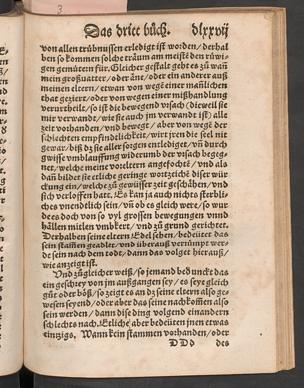 3
Das dritt bůch. dlxxvij
von allen trübnussen erledigt ist worden / derhal
ben so kommen solcht träum am meisten den rüwi
gen gemütern für. Gleicher gestalt geht es zů wañ
mein großuatter / oder änt / oder ein anderer auß
meinen eltern / etwan von wegē einer manlichen
that geziert / oder von wegen einer mißhandlung
verurtheilt / so ist die bewegend vrsach (dieweil sie
mir verwandt / wie sie auch jm verwandt ist) alle
zeit vorhanden / vnd bewegt / aber von wegē der
schlechten empfindtlicheit / wirt jren die seel nit
gewar / biß dz sie aller sorgen entlediget / vñ durch
gwisse vmblauffung widerumb der vrsach begeg=
net / welche meine voreltern angefochtē / vnd als
dañ bildet sie etliche geringe wortzeichē diser wür
ckung ein / welche zů gewüsser zeit geschähen / vnd
sich verloffen hatt. Es kan ja auch nichts sterbli=
ches vnendtlich sein / vñ ob es gleich wer / so wur
dees doch von so vyl grossen bewegungen vnnd
hällen mitlen vmbkert / vnd zů grund gerichtet.
Derhalben seine eltern Edel sehen / bedeütet das
sein stam̃en geadlet / vnd überauß verrümpt wer=
de sein nach dem todt / dann das volget hierauß /
wie anzeigt ist.
Vnd zů gleicher weiß / so jemand bedunckt das
ein geschrey von jm außgangen sey / es seye gleich
gůt oder böß / so zeigt es an dz seine eltern also ge=
wesen seyend / oder aber das seine nachkom̃en also
sein werden / dann dise ding volgend einandern
schlechts nach. Etliche aber bedeüten jnen etwas
eintzigs, Wann kein stammen vorhanden / oder
DDd des